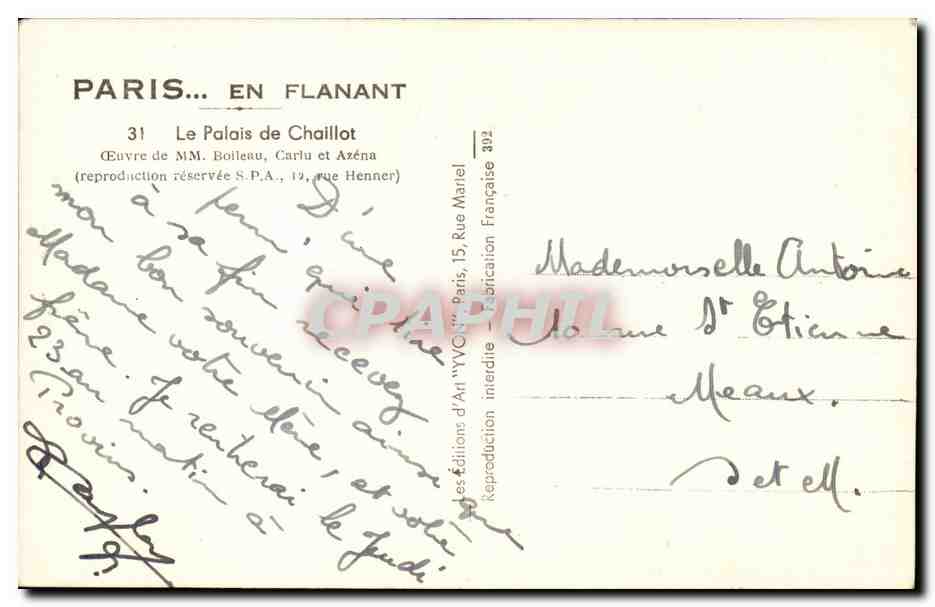 PARIS... EN FLANANT
31 Le Palais de Chaillot
Œuvre de MM. Boileau, Carlu et Azéna
(reproduction réservée S.P.A., 12, rue Henner)
D'une
perm, qui tire
à sa fin recevez
mon bon souvenir ainsi que
Madame votre Mère, et votre
frère. Je rentrerai le Jeudi
23 au matin à
Provins.
Les Editions d'Art "YVON" Paris, 15, Rue Martel
Reproduction interdite — Fabrication Française 392
Mademoiselle Antoine
rue St Etienne
Meaux.
S et M.
CPAPHIL